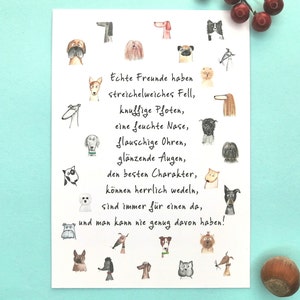 Echte Freunde haben
streichelweiches Fell,
knuffige Pfoten,
eine feuchte Nase,
flauschige Ohren,
glänzende Augen,
den besten Charakter,
können herrlich wedeln,
sind immer für einen da,
und man kann nie genug davon haben!